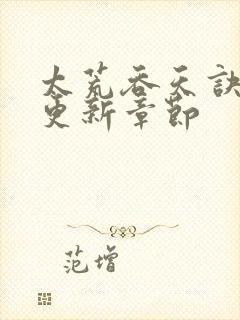 太荒吞天诀
更新章节
范增